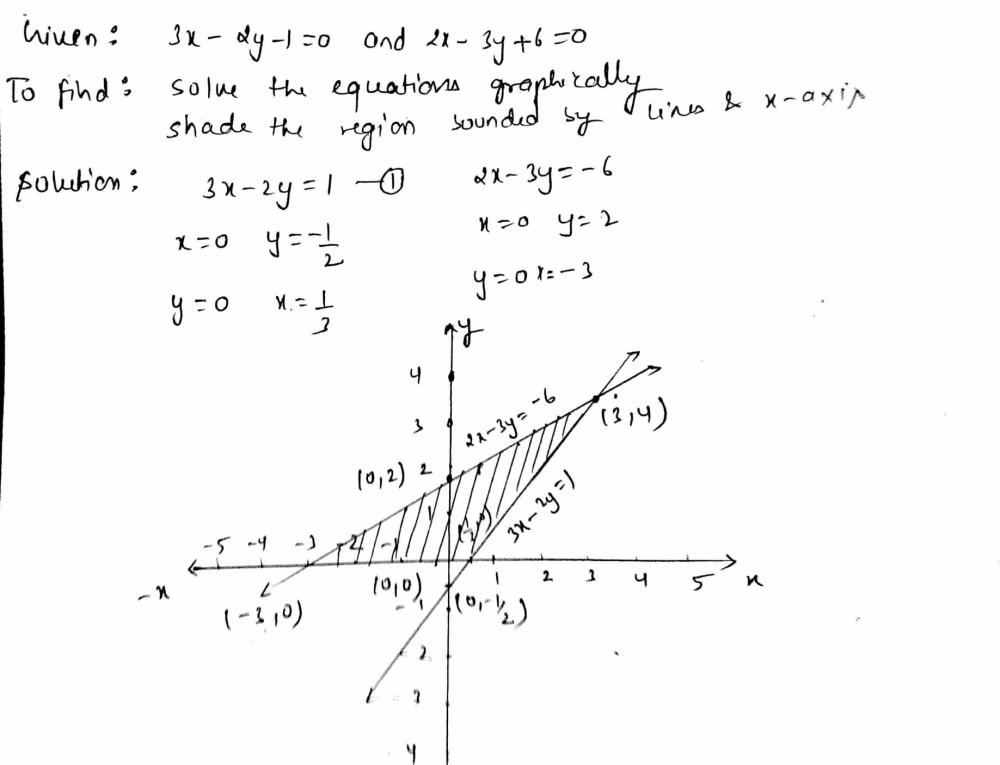 Given: 3x - 2y - 1 = 0 and 2x - 3y + 6 = 0
To find: solve the equations graphically
shade the region bounded by lines & x-axis
Solution: 3x - 2y = 1 —① 2x - 3y = -6
x = 0 y = -1/2 x = 0 y = 2
y = 0 x = 1/3 y = 0 x = -3
y
4
3
2x - 3y = -6
(3,4)
(0,2) 2
1
(1/2,0)
3x - 2y = 1
-5 -4 -3 -2 -1
1 2 3 4 5 x
-x
(-3,0)
(0,0)
-1
(0,-1/2)
2
4